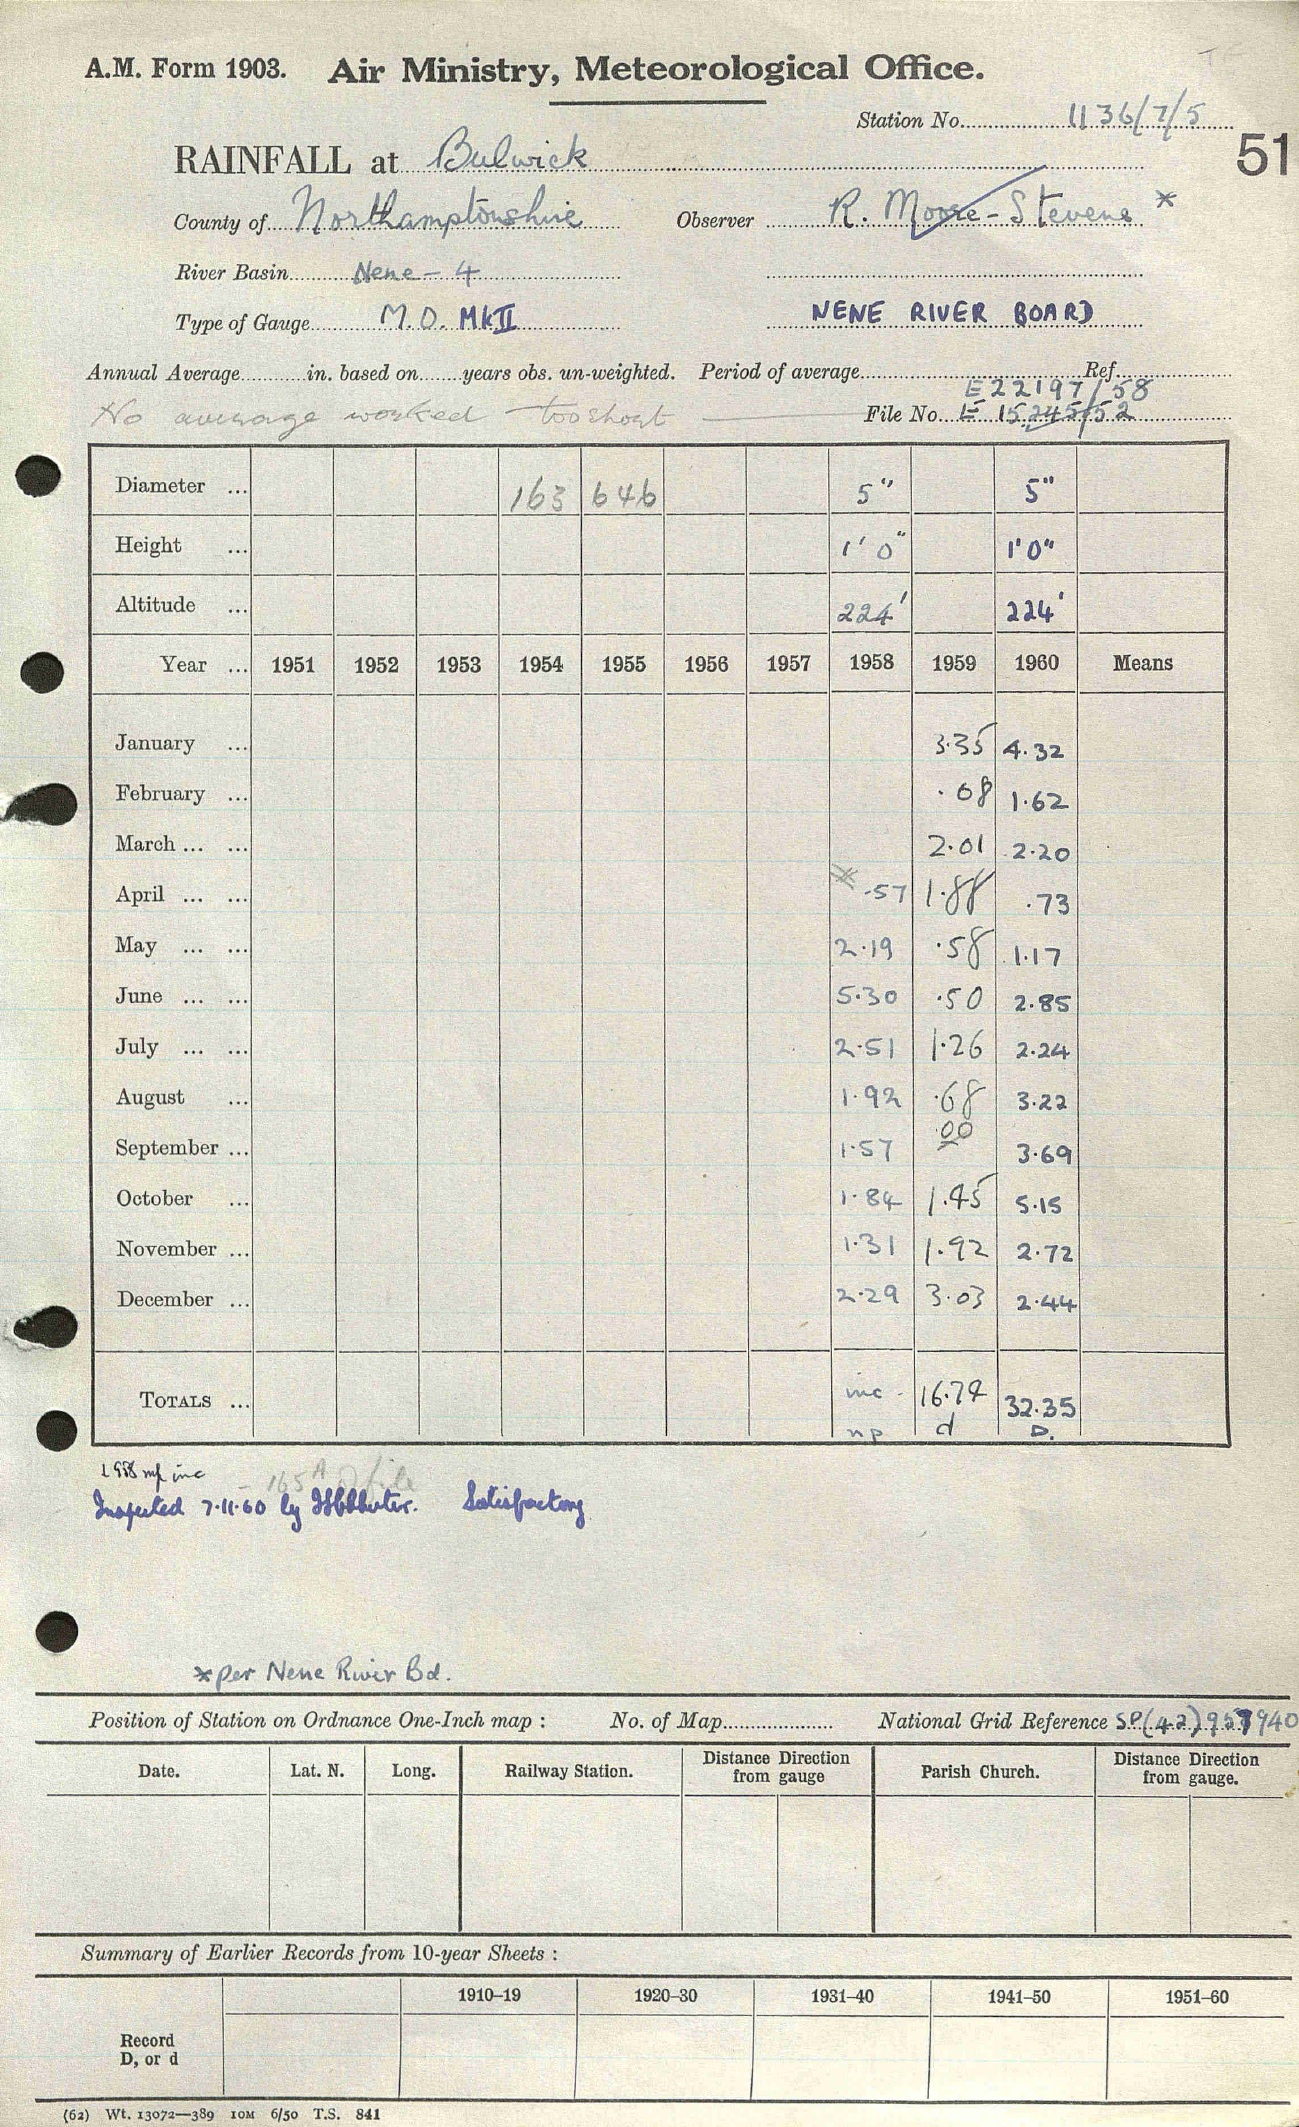 A.M. Form 1903. Air Ministry, Meteorological Office.
Station No. 1136/7/5
51
RAINFALL at Bulwick
County of Northamptonshire Observer R. Moore-Stevens *
River Basin Nene - 4
Type of Gauge M.O. MkII NENE RIVER BOARD
Annual Average in. based on years obs. un-weighted. Period of average Ref.
E 22197/58
No average worked too short File No. E 15245/52
Diameter ... 163 646 5" 5"
Height ... 1' 0" 1'0"
Altitude ... 224' 224'
Year ... 1951 1952 1953 1954 1955 1956 1957 1958 1959 1960 Means
January ... 3.35 4.32
February ... .08 1.62
March ... ... 2.01 2.20
April ... ... * .57 1.88 .73
May ... ... 2.19 .58 1.17
June ... ... 5.30 .50 2.85
July ... ... 2.51 1.26 2.24
August ... 1.92 .68 3.22
September ... 1.57 .00 3.69
October ... 1.84 1.45 5.15
November ... 1.31 1.92 2.72
December ... 2.29 3.03 2.44
TOTALS ... inc. 16.74 32.35
np d D.
1958 inc
Inspected 7.11.60 by Satisfactory
* per Nene River Bd.
Position of Station on Ordnance One-Inch map : No. of Map National Grid Reference SP(42)957940
Date. Lat. N. Long. Railway Station. Distance from gauge Direction Parish Church. Distance from gauge. Direction
Summary of Earlier Records from 10-year Sheets :
1910–19 1920–30 1931–40 1941–50 1951–60
Record
D, or d
(62) Wt. 13072—389 10M 6/50 T.S. 841